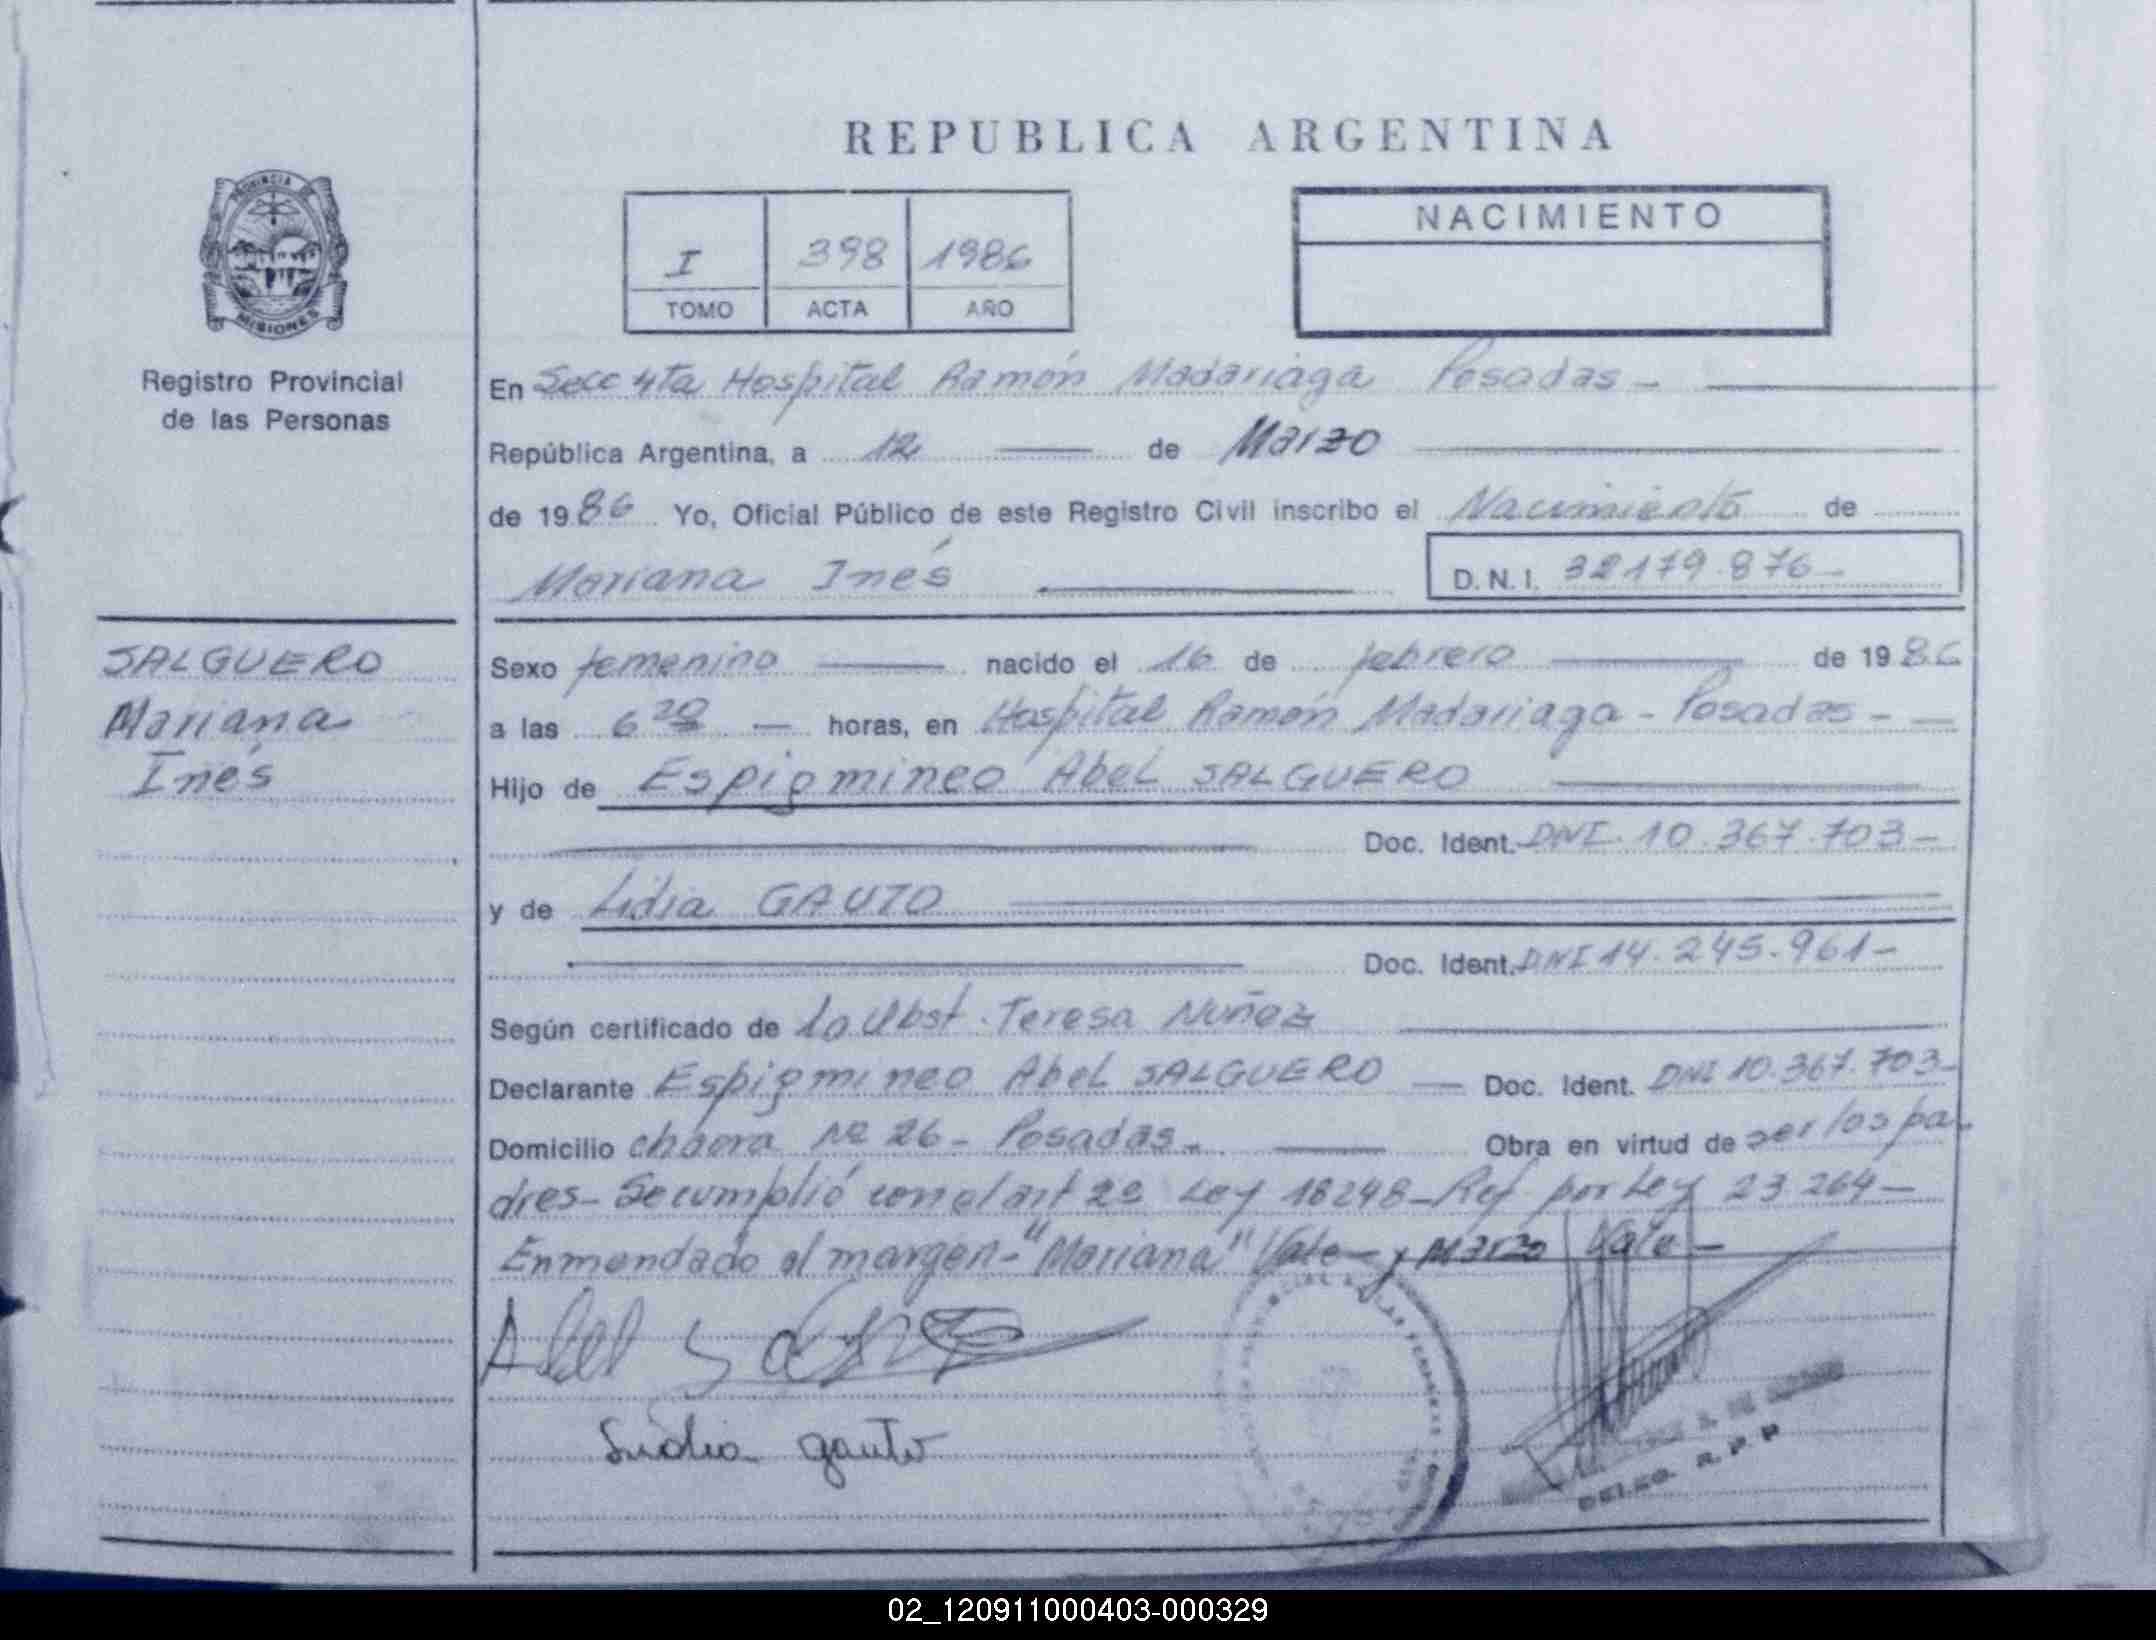 REPUBLICA ARGENTINA
PROVINCIA DE
MISIONES
Registro Provincial
de las Personas
I 398 1986
TOMO ACTA AÑO
NACIMIENTO
En Secc 4ta Hospital Ramón Madariaga Posadas -
República Argentina, a 12 de Marzo
de 1986 Yo, Oficial Público de este Registro Civil inscribo el Nacimiento de
Mariana Inés
D.N.I. 32179.876-
SALGUERO
Mariana
Inés
Sexo femenino nacido el 16 de febrero de 1986
a las 6 20 - horas, en Hospital Ramón Madariaga - Posadas -
Hijo de Espigmineo Abel SALGUERO
Doc. Ident. DNI. 10.367.703-
y de Lidia GAUTO
Doc. Ident. DNI 14.245.961-
Según certificado de la Obst. Teresa Nuñez
Declarante Espigmineo Abel SALGUERO - Doc. Ident. DNI 10.367.703-
Domicilio chacra Nº 26 - Posadas - Obra en virtud de ser los pa-
dres - Se cumplió con el art 2º Ley 18248 - Ref por Ley 23.264 -
Enmendado al margen - "Mariana" Vale - y Marzo Vale -
Abel
Lidia gauto
DELEG. R. P. P
02_120911000403-000329